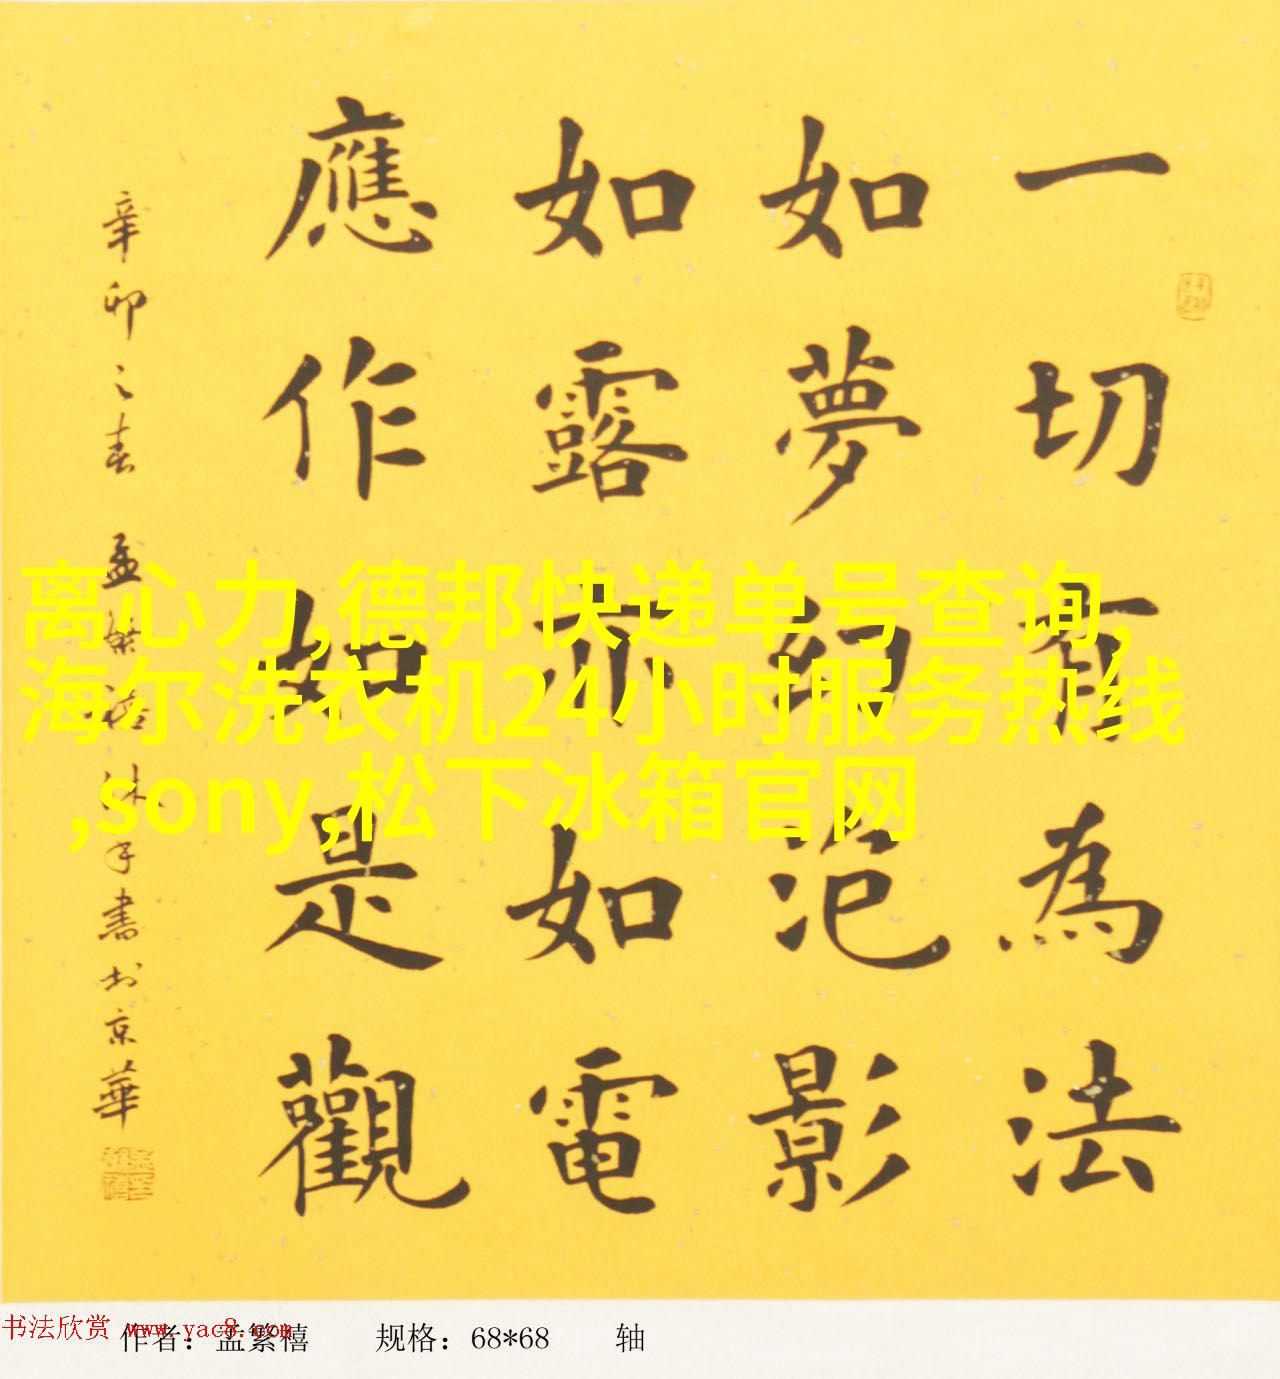 一切有為法
如夢幻泡影
如露亦如電
應作如是觀
辛卯之春 孟繁禧沐手書於京華
离心力,德邦快递单号查询,
海尔洗衣机24小时服务热线
,sony,松下冰箱官网
书法欣赏 www.yac8.com
作者：孟繁禧 规格：68*68 轴